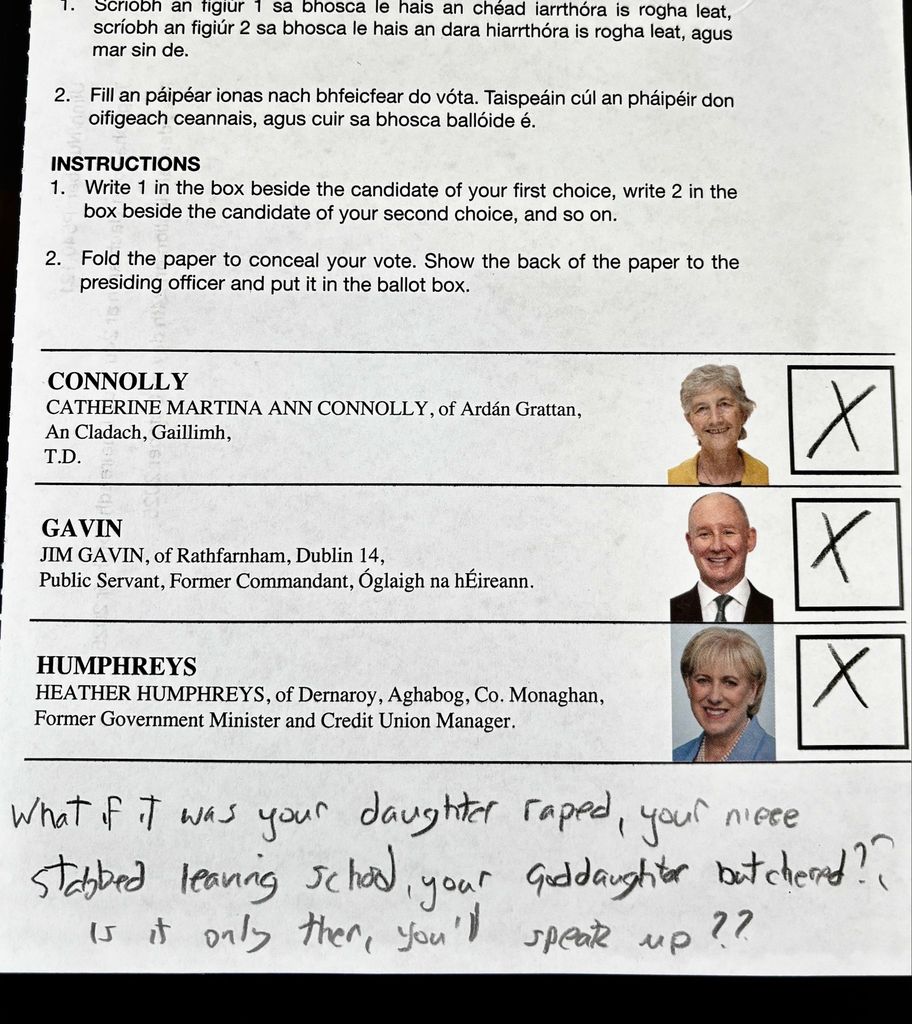 1. Scríobh an figiúr 1 sa bhosca le hais an chéad iarrthóra is rogha leat,
scríobh an figiúr 2 sa bhosca le hais an dara hiarrthóra is rogha leat, agus
mar sin de.
2. Fill an páipéar ionas nach bhfeicfear do vóta. Taispeáin cúl an pháipéir don
oifigeach ceannais, agus cuir sa bhosca ballóide é.
INSTRUCTIONS
1. Write 1 in the box beside the candidate of your first choice, write 2 in the
box beside the candidate of your second choice, and so on.
2. Fold the paper to conceal your vote. Show the back of the paper to the
presiding officer and put it in the ballot box.
CONNOLLY
CATHERINE MARTINA ANN CONNOLLY, of Ardán Grattan,
An Cladach, Gaillimh,
T.D.
X
GAVIN
JIM GAVIN, of Rathfarnham, Dublin 14,
Public Servant, Former Commandant, Óglaigh na hÉireann.
X
HUMPHREYS
HEATHER HUMPHREYS, of Dernaroy, Aghabog, Co. Monaghan,
Former Government Minister and Credit Union Manager.
X
What if it was your daughter raped, your niece
stabbed leaving school, your Goddaughter butchered??
Is it only then, you'll speak up??